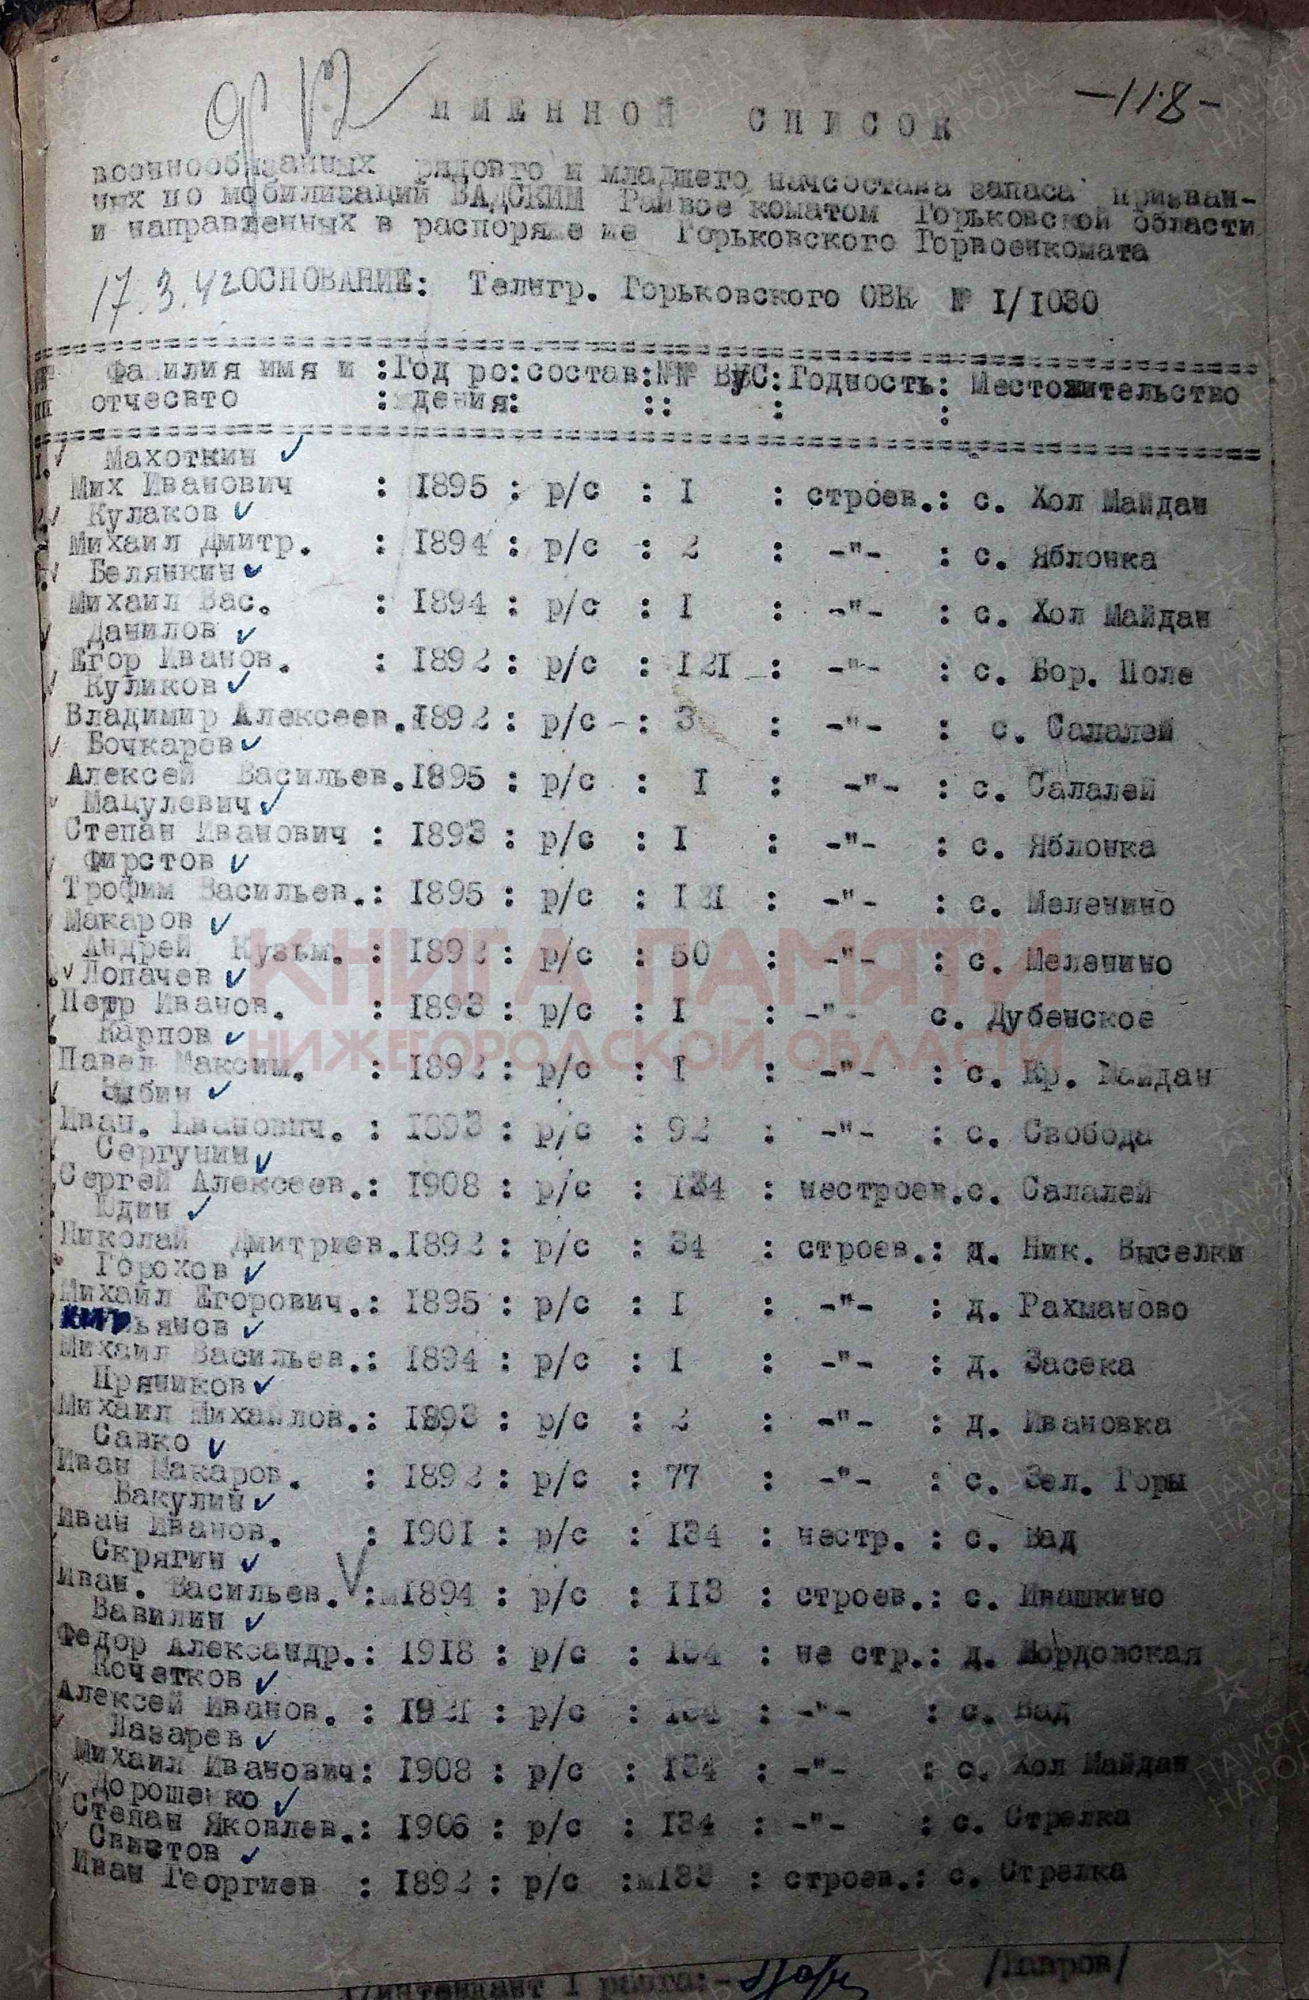 -118-
ИМЕННОЙ СПИСОК
военнообязанных рядовго и младшего начсостава запаса призван-
ных по мобилизаций ВАДСКИМ Райвое коматом Горьковской области
и направленных в распоряже ие Горьковского Горвоенкомата
17.3.42 ОСНОВАНИЕ: Телнгр. Горьковского ОВК № I/I030
Фамилия имя и :Год ро:состав:№№ ВУС:Годность: Местожительство
пп отчесвто : дения: :: : :
I. Махоткин
Мих Иванович : I895 : р/с : I : строев.: с. Хол Майдан
Кулаков
Михаил Дмитр. : I894 : р/с : 2 : -"- : с. Яблонка
Белянкин
Михаил Вас. : I894 : р/с : I : -"- : с. Хол Майдан
Данилов
Егор Иванов. : I892 : р/с : I2I : -"- : с. Бор. Поле
Куликов
Владимир Алексеев. I892 : р/с - : 3 : -"- : с. Салалей
Бочкарев
Алексей Васильев. I895 : р/с : I : -"- : с. Салалей
Мацулевич
Степан Иванович : I893 : р/с : I : -"- : с. Яблонка
Фирстов
Трофим Васильев.: I895 : р/с : : -"- : с. Меленино
Макаров
Андрей Кузьм. : I892 : р/с : 50 : -"- : с. Меленино
Лопачев
Петр Иванов. : I893 : р/с : I : -"- с. Дубенское
Карпов
Павел Максим. : I892 : р/с : I : -"- : с. Кр. Майдан
Зыбин
Иван. Иванович. : I893 : р/с : 92 : -"- : с. Свобода
Сергунин
Сергей Алексеев.: I908 : р/с : I34 : нестроев.с. Салалей
Юдин
Николай Дмитриев. I892 : р/с : 34 : строев.: д. Ник. Выселки
Горохов
Михаил Егорович.: I895 : р/с : I : -"- : д. Рахманово
ьянов
Михаил Васильев.: I894 : р/с : I : -"- : д. Засека
Пряников
Михаил Михайлов.: I893 : р/с : 2 : -"- : д. Ивановка
Савко
Иван Макаров. : I892 : р/с : 77 : -"- : с. Зел. Горы
Вакулин
Иван Иванов. : I90I : р/с : I34 : нестр. : с. Вад
Скрягин
Иван. Васильев. : I894 : р/с : II3 : строев.: с. Ивашкино
Вавилин
Федор Александр.: I918 : р/с : I34 : не стр.: д. Мордовская
Кочетков
Алексей Иванов. : I92I : р/с : I34 : -"- : с. Вад
Лазарев
Михаил Иванович: I908 : р/с : I34 : -"- : с. Хол Майдан
Дорошенко
Степан Яковлев.: I906 : р/с : I34 : -"- : с. Стрелка
Свистов
Иван Георгиев : I892 : р/с :мI33 : строев.: с. Стрелка
интендант I ранга:- /Лавров/
КНИГА ПАМЯТИ
НИЖЕГОРОДСКОЙ ОБЛАСТИ
ПАМЯТЬ НАРОДА